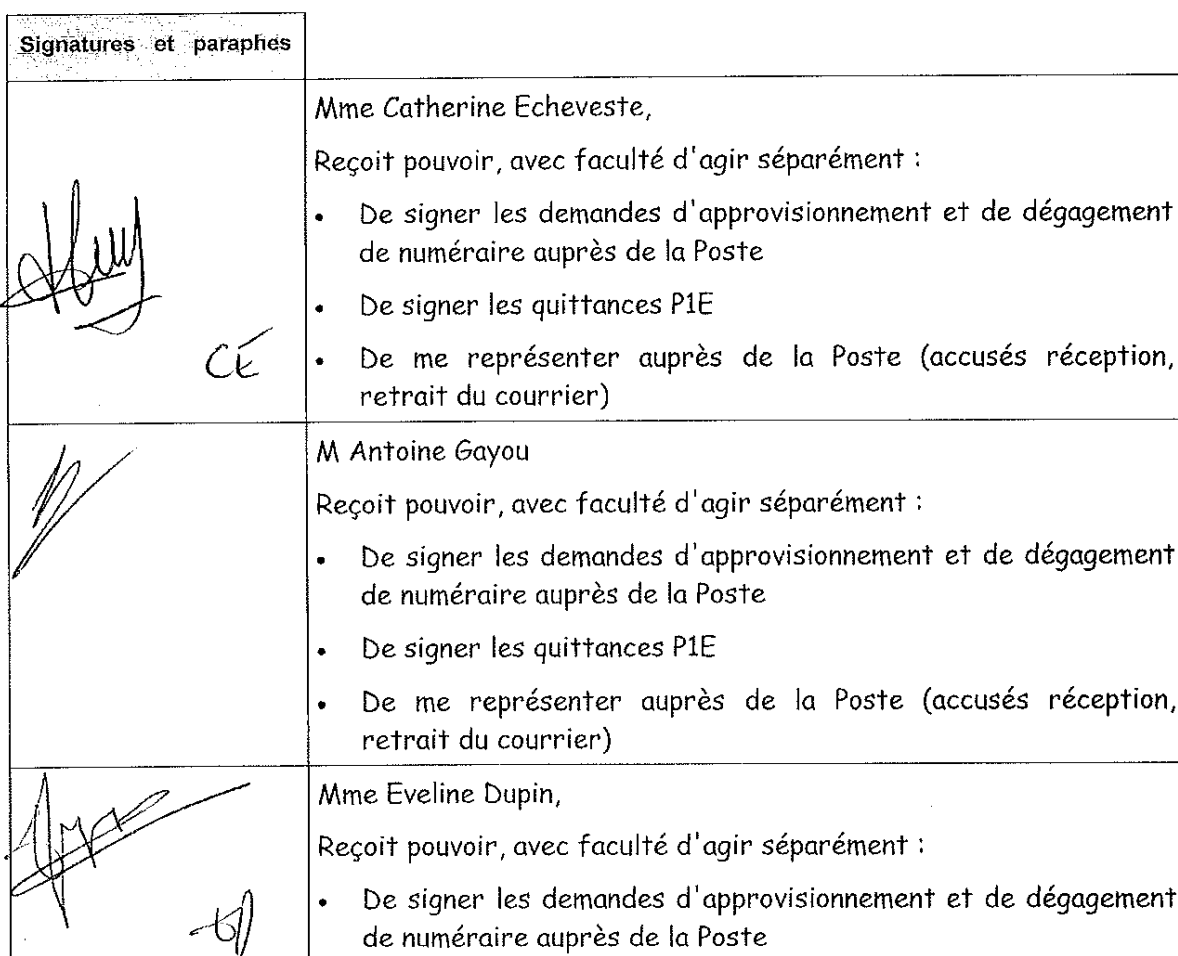 Signatures et paraphes
Mme Catherine Echeveste,
Reçoit pouvoir, avec faculté d'agir séparément :
• De signer les demandes d'approvisionnement et de dégagement
de numéraire auprès de la Poste
• De signer les quittances P1E
• De me représenter auprès de la Poste (accusés réception,
retrait du courrier)
CE
M Antoine Gayou
Reçoit pouvoir, avec faculté d'agir séparément :
• De signer les demandes d'approvisionnement et de dégagement
de numéraire auprès de la Poste
• De signer les quittances P1E
• De me représenter auprès de la Poste (accusés réception,
retrait du courrier)
Mme Eveline Dupin,
Reçoit pouvoir, avec faculté d'agir séparément :
• De signer les demandes d'approvisionnement et de dégagement
de numéraire auprès de la Poste